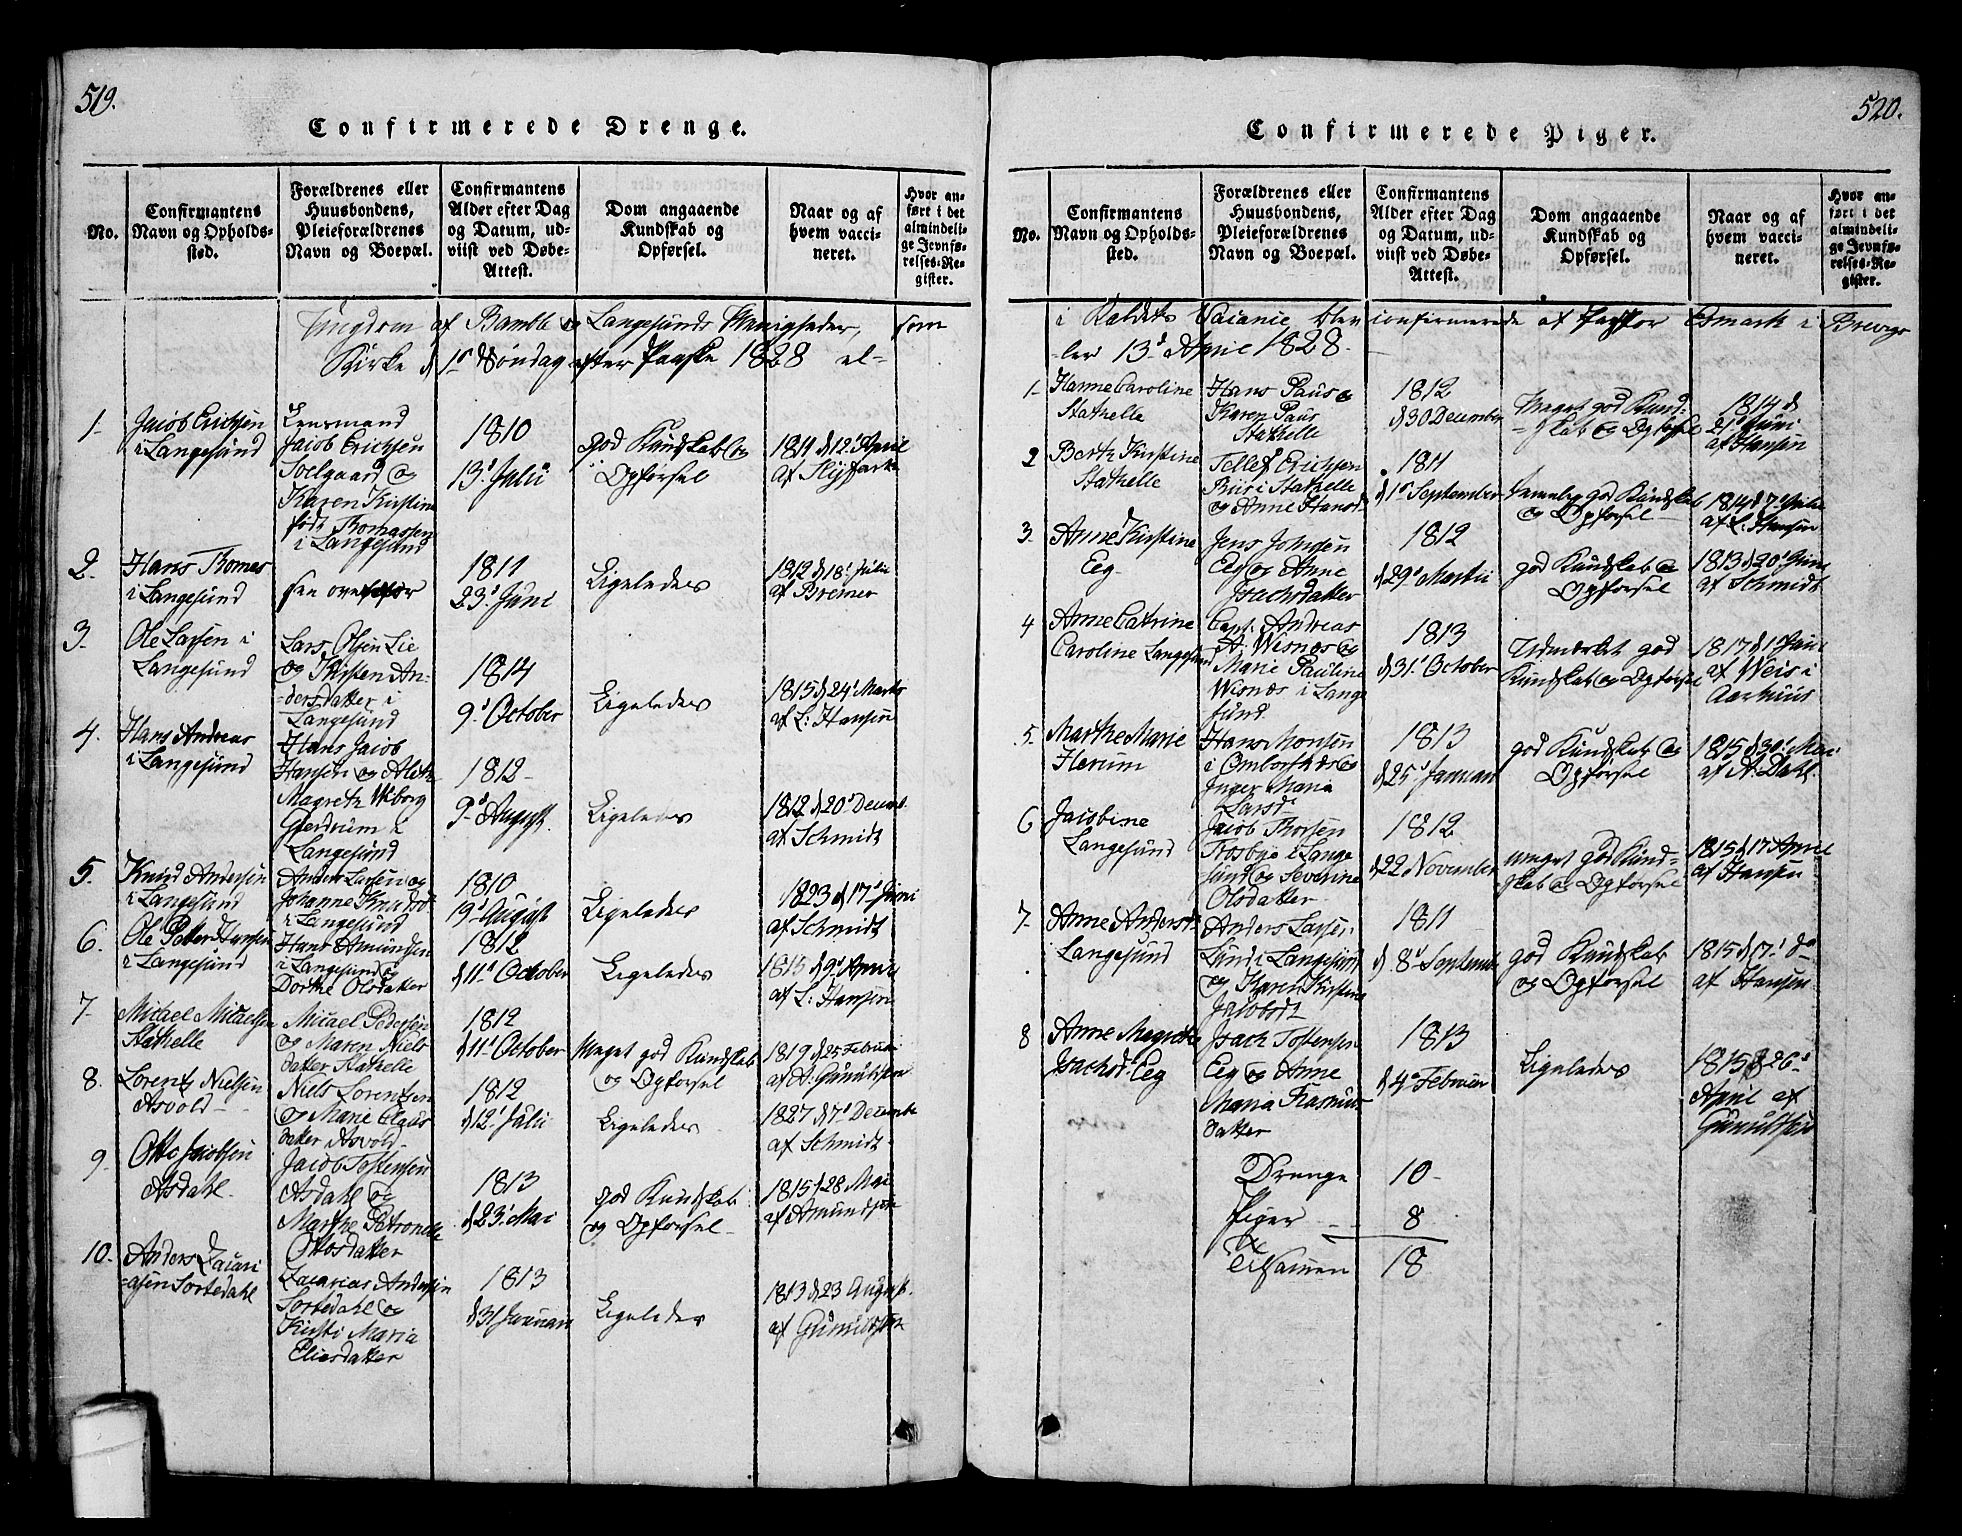 519.
Confirmerede Drenge.
No.
Confirmantens
Navn og Opholds-
sted.
Forældrenes eller
Huusbondens,
Pleieforældrenes
Navn og Boepæl.
Confirmantens
Alder efter Dag
og Datum, ud-
viist ved Døbe-
Attest.
Dom angaaende
Kundskab og
Opførsel.
Naar og af
hvem vacci-
neret.
Hvor an-
ført i det
almindeli-
ge Jevnfø-
relses-Re-
gister.
Ungdom af Bamble og Langesunds Menigheder, som
Kirke d 1e Søndag efter Paaske 1828 el-
1-
Jacob Erichsen
i Langesund
Lensmand
Jacob Erichsen
Solgaard og
Karen Kirstine
født Thomassen
i Langesund
1810
13d Julii
god Kundskab og
Opførsel
1811 d 12t April
af
2.
Hans Thomes
i Langesund
sen ovenfor
1811
23d Juni
Ligeledes
1812 d 18t Julii
af Bremer
3.
Ole Larsen i
Langesund
Lars Olsen Lie
og Kirsten An-
-dersdatter i
Langesund
1814
9d October
Ligeledes
1815 d 24t Marts
af L: Hansen
4.
Hans Andreas
i Langesund
Hans Jacob
Hansen og Aleth
Magreth Wiborg
Gierdrum i
Langesund
1812-
9d August
Ligeledes
1812 d 20d Decemb.
af Schmidt
5.
Knud Andersen
i Langesund
Anders Larsen og
Johanne Knudsd
i Langesund
1810
19d August
Ligeledes
1823 d 17d Juni
af Schmidt
6.
Ole Peter Hansen
i Langesund
Hans Amundsen
i Langesund og
Dorthe Olsdatter
1812
d 11t October
Ligeledes
1815 d 9d April
af L: Hansen
7-
Micael Micaelsen
Stathelle
Micael Pedersen
og Maren Niels
datter Stathelle
1812
d 11t October
Meget god Kundskab
og Opførsel
1819 d 25 Februar
af A: Gunuldsen
8.
Lorentz Nielsen
Asvold-
Niels Lorentsen
og Marie Claus
datter Asvold-
1812
d 12t Julii
Ligeledes
1827 d 7d Decembe
af Schmidt
9.
Otto Jacobsen
Asdahl.
Jacob Tostensen
Asdahl og
Marthe Petronelle
Ottosdatter
1813
d 23d Mai
god Kundskab
og Opførsel-
1815 d 28 Mai
af Amundsen
10.
Anders Zacari
-asen Sortedahl
Zacarias Andersen
Sortedahl og
Kirsti Maria
Eliesdatter
1813
d 31 Januari
Ligeledes
1813 d 23 August.
af Gunuldsen
520.
Confirmerede Piger.
No.
Confirmantens
Navn og Opholds-
sted.
Forældrenes eller
Huusbondens,
Pleieforældrenes
Navn og Boepæl.
Confirmantens
Alder efter Dag
og Datum, ud-
viist ved Døbe-
Attest.
Dom angaaende
Kundskab og
Opførsel.
Naar og af
hvem vacci-
neret.
Hvor an-
ført i det
almindeli-
ge Jevnfø-
relses-Re-
gister.
i Kaldets Vacance blev confirmerede af Pastor Esmark i Brevigs
-ler 13d April 1828-
1-
Hanne Caroline
Stathelle
Hans Paus og
Karen Paus
Stathelle
1812
d 30 December
Meget god Kund-
-skab og Opførsel
1814 d
21d Juni
af Hansen
2
Berthe Kirstine
Stathelle
Tellef Erichsen
Riis i Stathelle
og Anne Hansd.
1811
d 1e September
temmelig god Kundskab
og Opførsel
1814 d 7d Julii
af L. Hansen
3.
Anne Kirstine
Eeg-
Jens Johnsen
Eeg og Anne
Isachsdatter
1812
d 29d Martii
god Kundskab og
Opførsel
1813 d 20d Juni
af Schmidt
4
Anne Catrine
Caroline Langesund
Capt. Andreas
A. Wisnes og
Marie Pauline
Wisnæs i Lange
sund.
1813
d 31d October
Udmærket god
Kundskab og Opførsel
1817 d 1e Juni
af Weis i
Aarhuus
5.
Marthe Marie
Herum
Hans Monsen
i Omborsnæs og
Inger Maria
Larsd.
1813
d 25d Januari
god Kundskab og
Opførsel
1815 d 30d Mai
af A. Dahl.
6
Jacobine
Langesund
Jacob Thorsen
Trosbye i Lange
sund og Severine
Olsdatter
1812
d 22 November
meget god Kund-
skab og Opførsel
1815 d 17 April
af Hansen
7-
Anne Andersd.
Langesund
Anders Larsen
Lund i Langesund
og Karen Kirstine
Jacobsdt
1811
d 8d September
god Kundskab
og Opførsel
1815 d 17d do
af Hansen
8
Anne Magrethe
Isachsd: Eeg
Isach Tostensen
Eeg og Anne
Maria Rasmus
datter
1813
d 4e Februar
Ligeledes
1815 d 26d
April af
Gunuldsen
Drenge 10-
Piger -- 8
Tilsamen 18